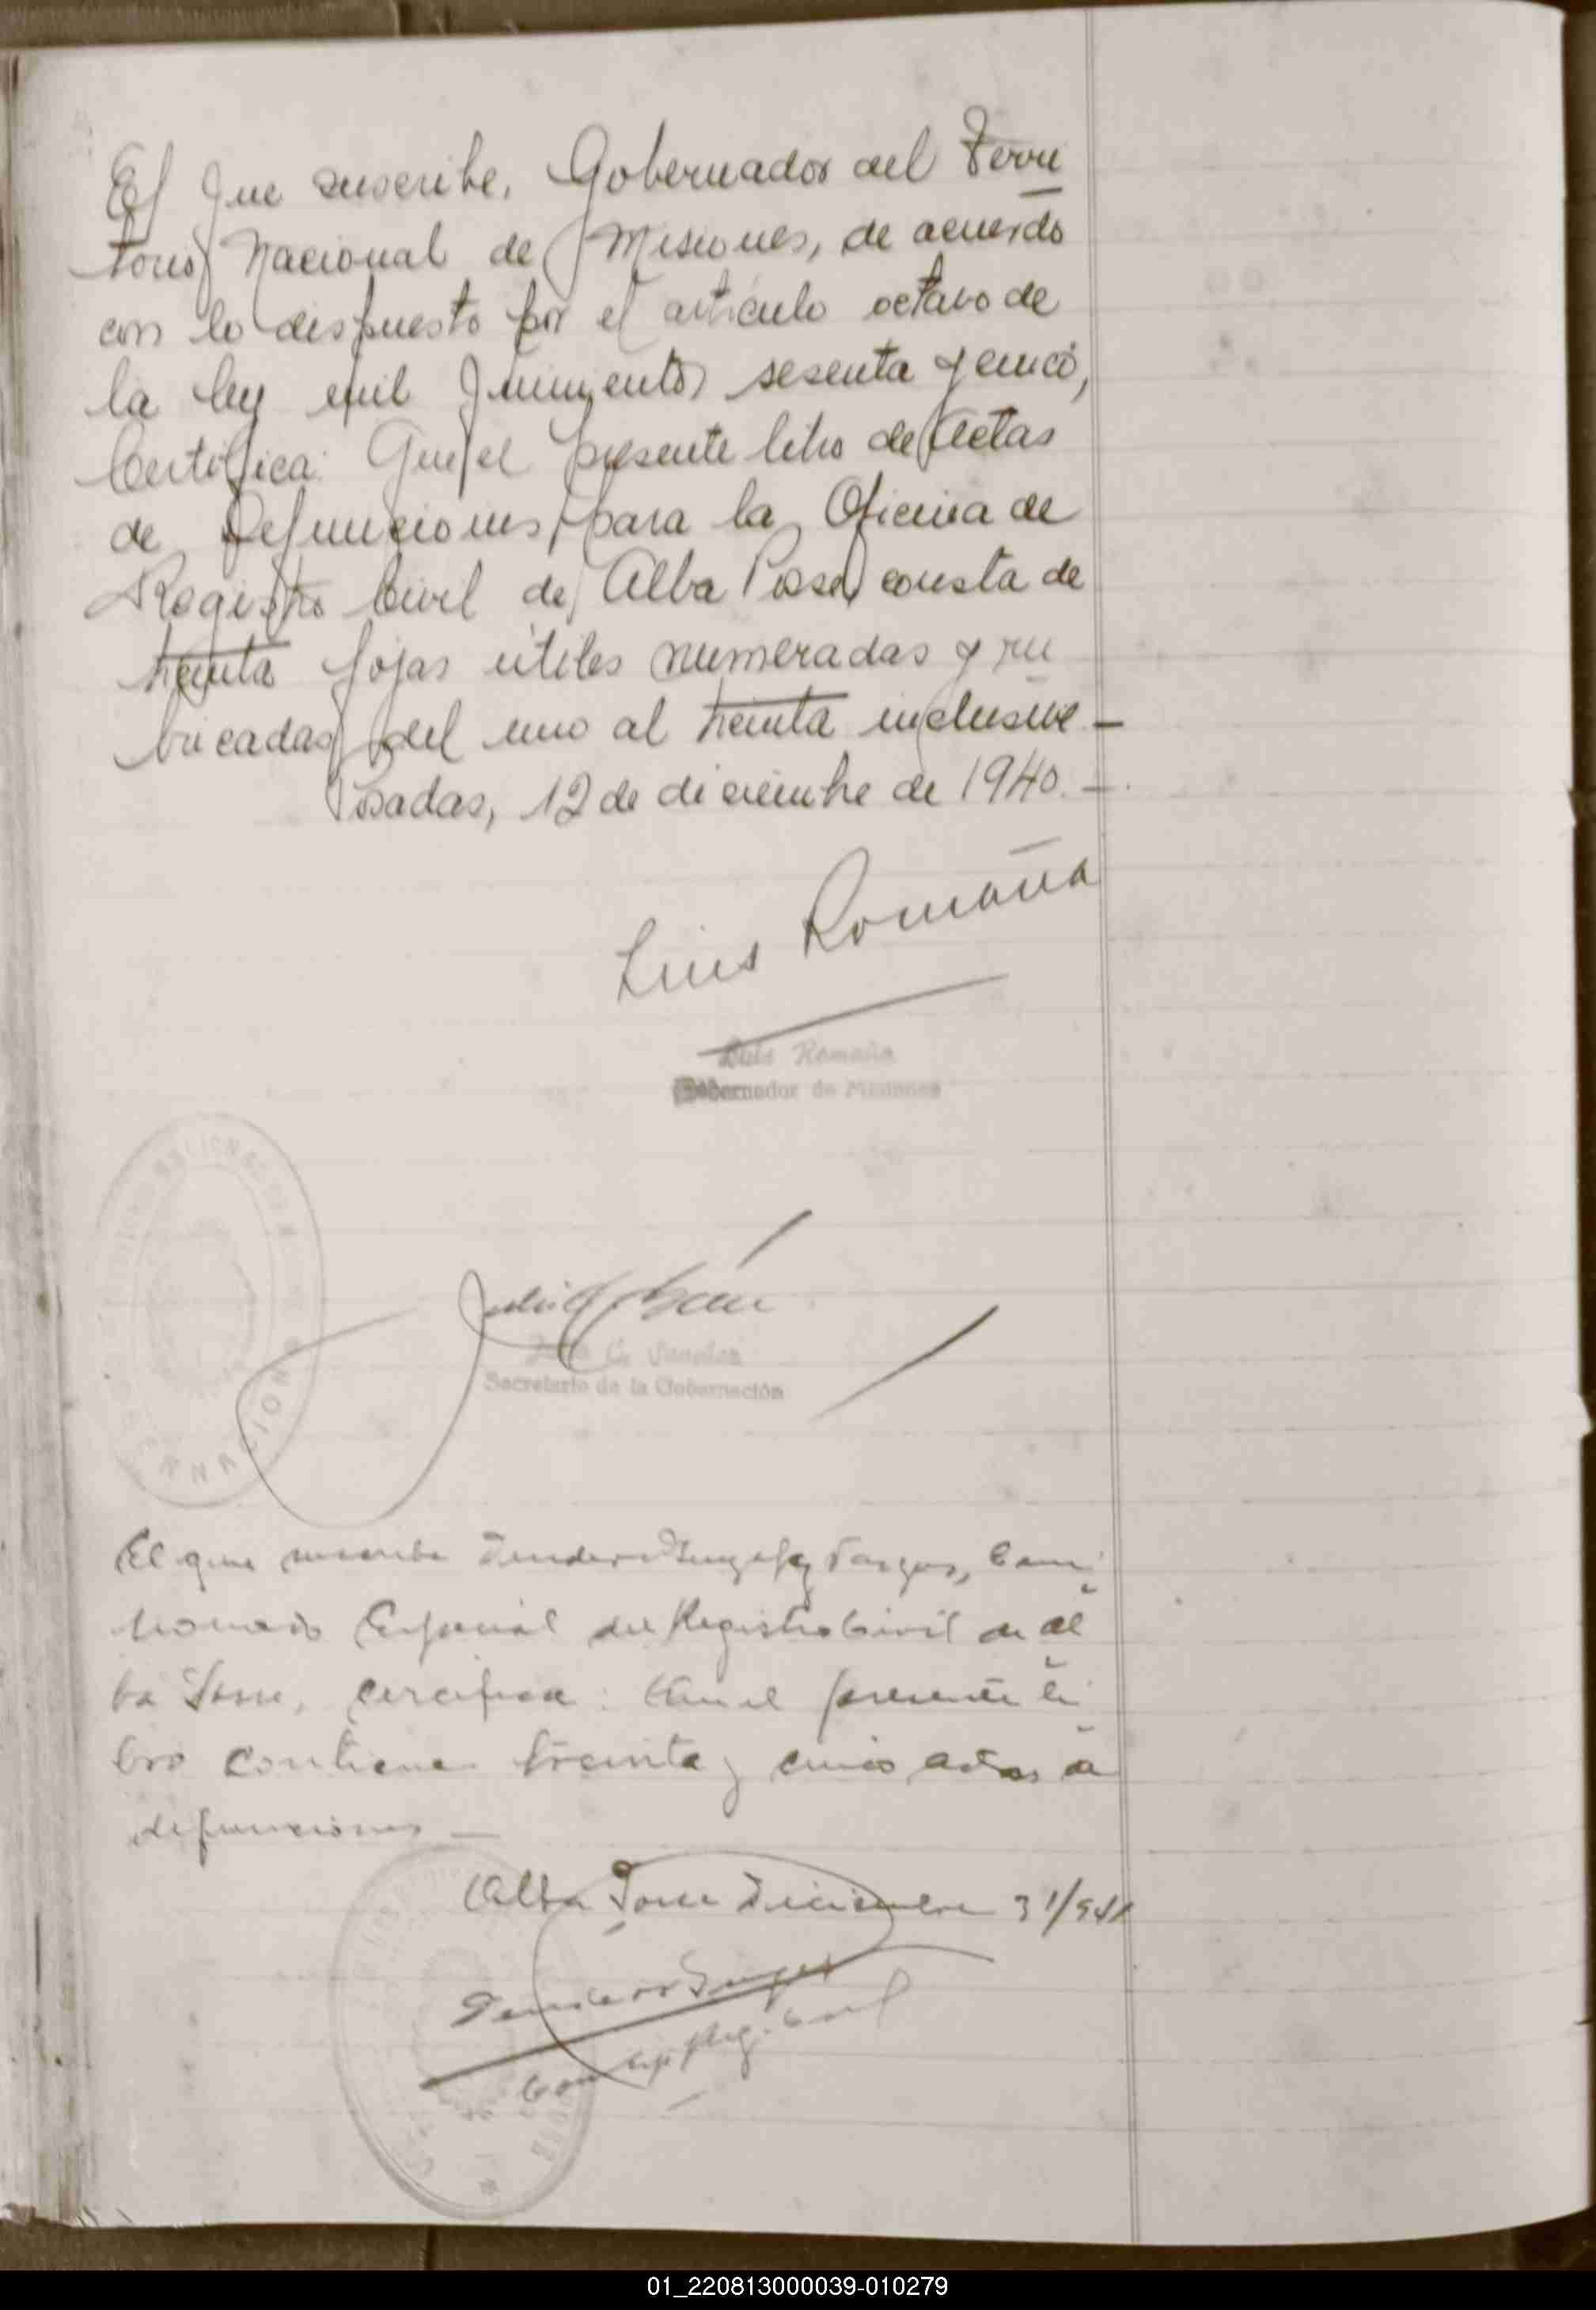 El que suscribe, Gobernador del Terri
torio Nacional de Misiones, de acuerdo
con lo dispuesto por el artículo octavo de
la ley mil quinientos sesenta y cinco,
Certifica: Que el presente libro de Actas
de Defunciones, para la Oficina de
Registro Civil de Alba Posse, consta de
treinta fojas útiles numeradas y ru
bricadas del uno al treinta inclusive.—
Posadas, 12 de diciembre de 1940.—
Luis Romaña
Luis Romaña
Gobernador de Misiones
Secretario de la Gobernación
El que suscribe Vargas, Comi
sionado Especial del Registro Civil de Al
ba Posse, certifica: Que el presente li
bro contiene treinta y cinco actas de
defunciones —
Alba Posse Diciembre 31/941
Reg. Civil
01_220813000039-010279